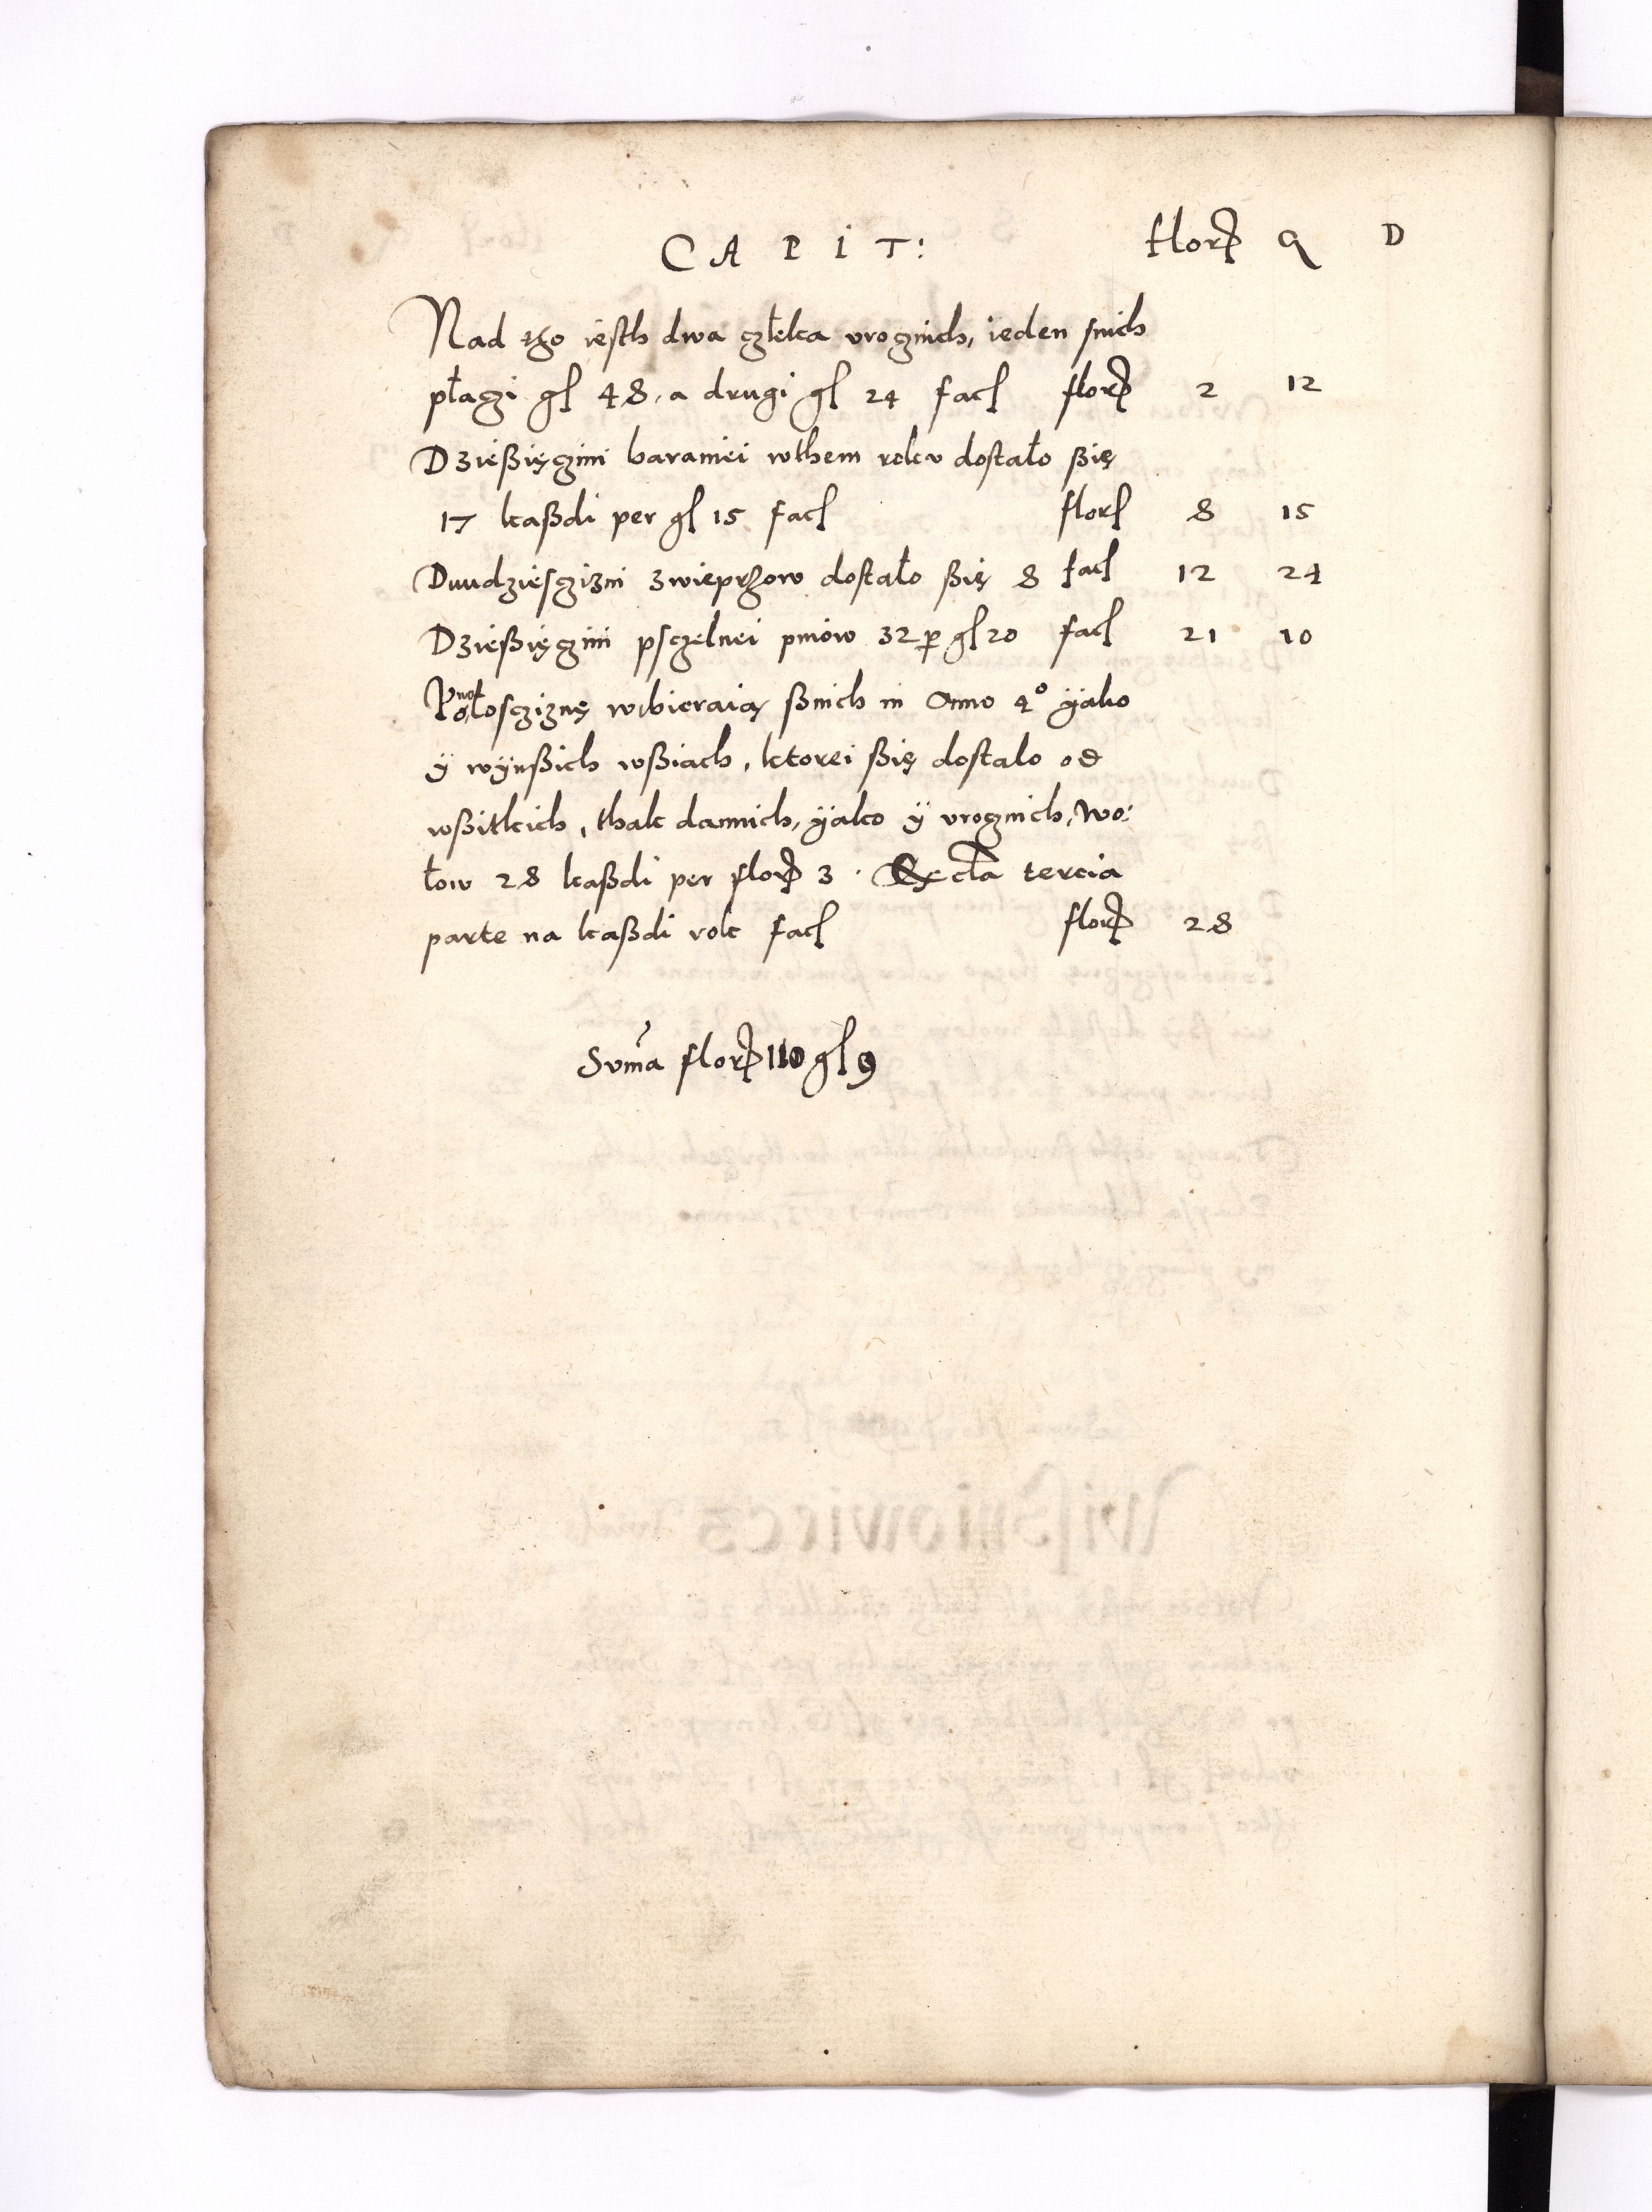 CAPIT: florʒ q D
Nad tho iesth dwa czleka vrocznich, ieden snich
płaczi gl 48, a drugi gl 24 facl florʒ 2 12
Dzießięczini baraniei wthem roku dostało ßię
17 kaßdi per gl 15 facl florl 8 15
Dwudziesczizni zwieprzow dostało ßię 8 facl 12 24
Dzießięczini psczelnei pniow 32 p gl 20 facl 21 10
Powołoscziznę wibieraią ßnich in Anno 4° ÿako
ÿ wÿnßich wßiach, ktorei ßię dostalo od
wßitkich, thak dannich, ÿako ÿ vrocznich, wo:
łow 28 kaßdi per florʒ 3. tercia
parte na kaßdi rok facl florʒ 28
Suma florʒ 110 gl 9